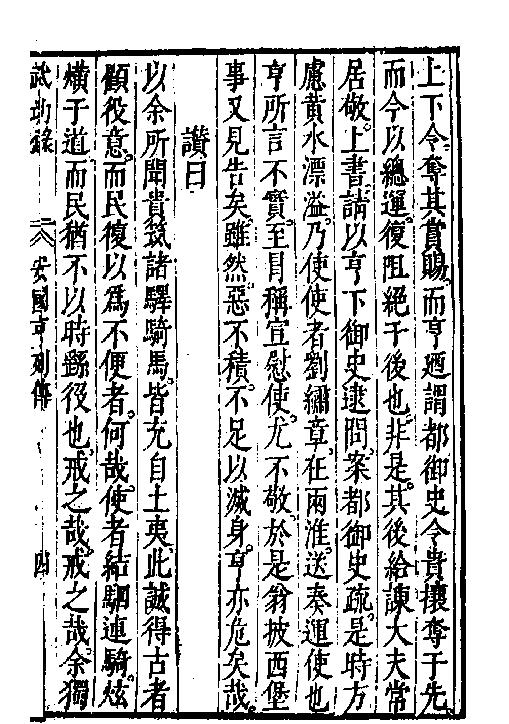 上下令奪其賞賜而亨廼謂都御史令貴攘奪于先
而今以總運復阻絕于後也非是其後給諫大夫常
居敬上書請以亨下御史逮問案都御史疏是時方
慮黃水漂溢乃使使者劉繡章在兩淮送奏運使也
亨所言不實至冐稱宣慰使尤不敬於是翁披西堡
事又見告矣雖然惡不積不足以滅身亨亦危矣哉
讚曰
以余所聞貴筑諸驛騎馬皆充自土夷此誠得古者
顧役意而民復以為不便者何哉使者結駟連騎炫
爌于道而民猶不以時繇役也戒之哉戒之哉余獨
武功錄 安國亨列傳 四